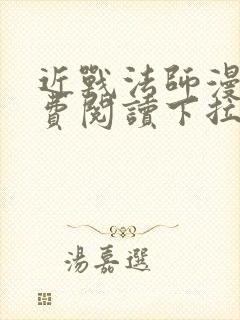 近戰法師漫
費閱讀下拉
湯嘉選